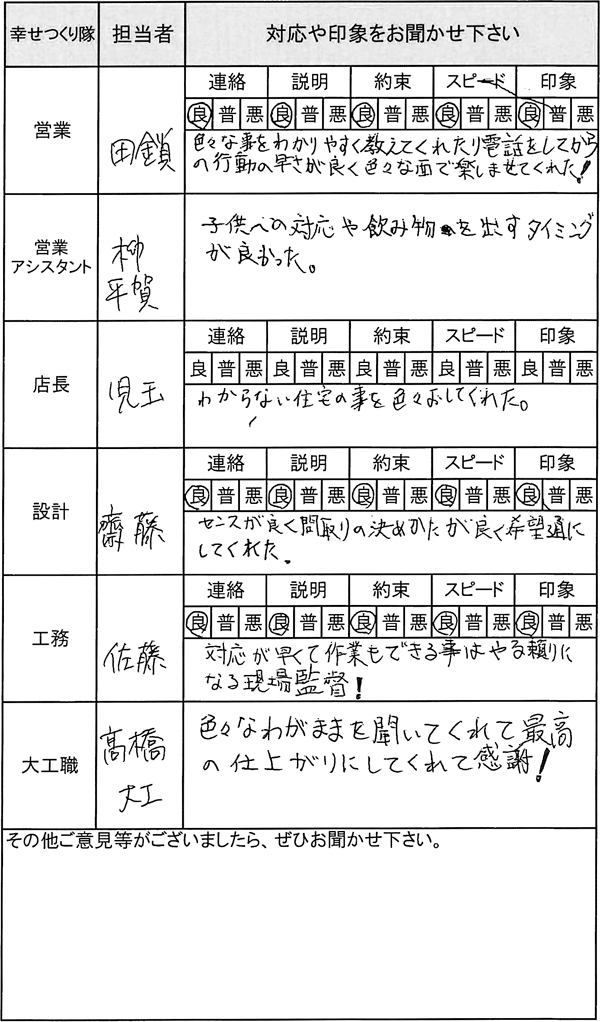 幸せつくり隊 担当者 対応や印象をお聞かせ下さい
営業 田鎖
連絡 説明 約束 スピード 印象
良 普 悪 良 普 悪 良 普 悪 良 普 悪 良 普 悪
色々な事をわかりやすく教えてくれたり電話をしてから
の行動の早さが良く色々な面で楽しませてくれた!
営業
アシスタント
柳
平賀
子供への対応や飲み物を出すタイミング
が良かった。
店長 児玉
連絡 説明 約束 スピード 印象
良 普 悪 良 普 悪 良 普 悪 良 普 悪 良 普 悪
わからない住宅の事を色々おしてくれた。
設計 齋藤
連絡 説明 約束 スピード 印象
良 普 悪 良 普 悪 良 普 悪 良 普 悪 良 普 悪
センスが良く間取りの決めかたが良く希望通に
してくれた.
工務 佐藤
連絡 説明 約束 スピード 印象
良 普 悪 良 普 悪 良 普 悪 良 普 悪 良 普 悪
対応が早くて作業もできる事はやる頼りに
なる現場監督!
大工職
髙橋
大工
色々なわがままを聞いてくれて最高
の仕上がりにしてくれて感謝!
その他ご意見等がございましたら、ぜひお聞かせ下さい。